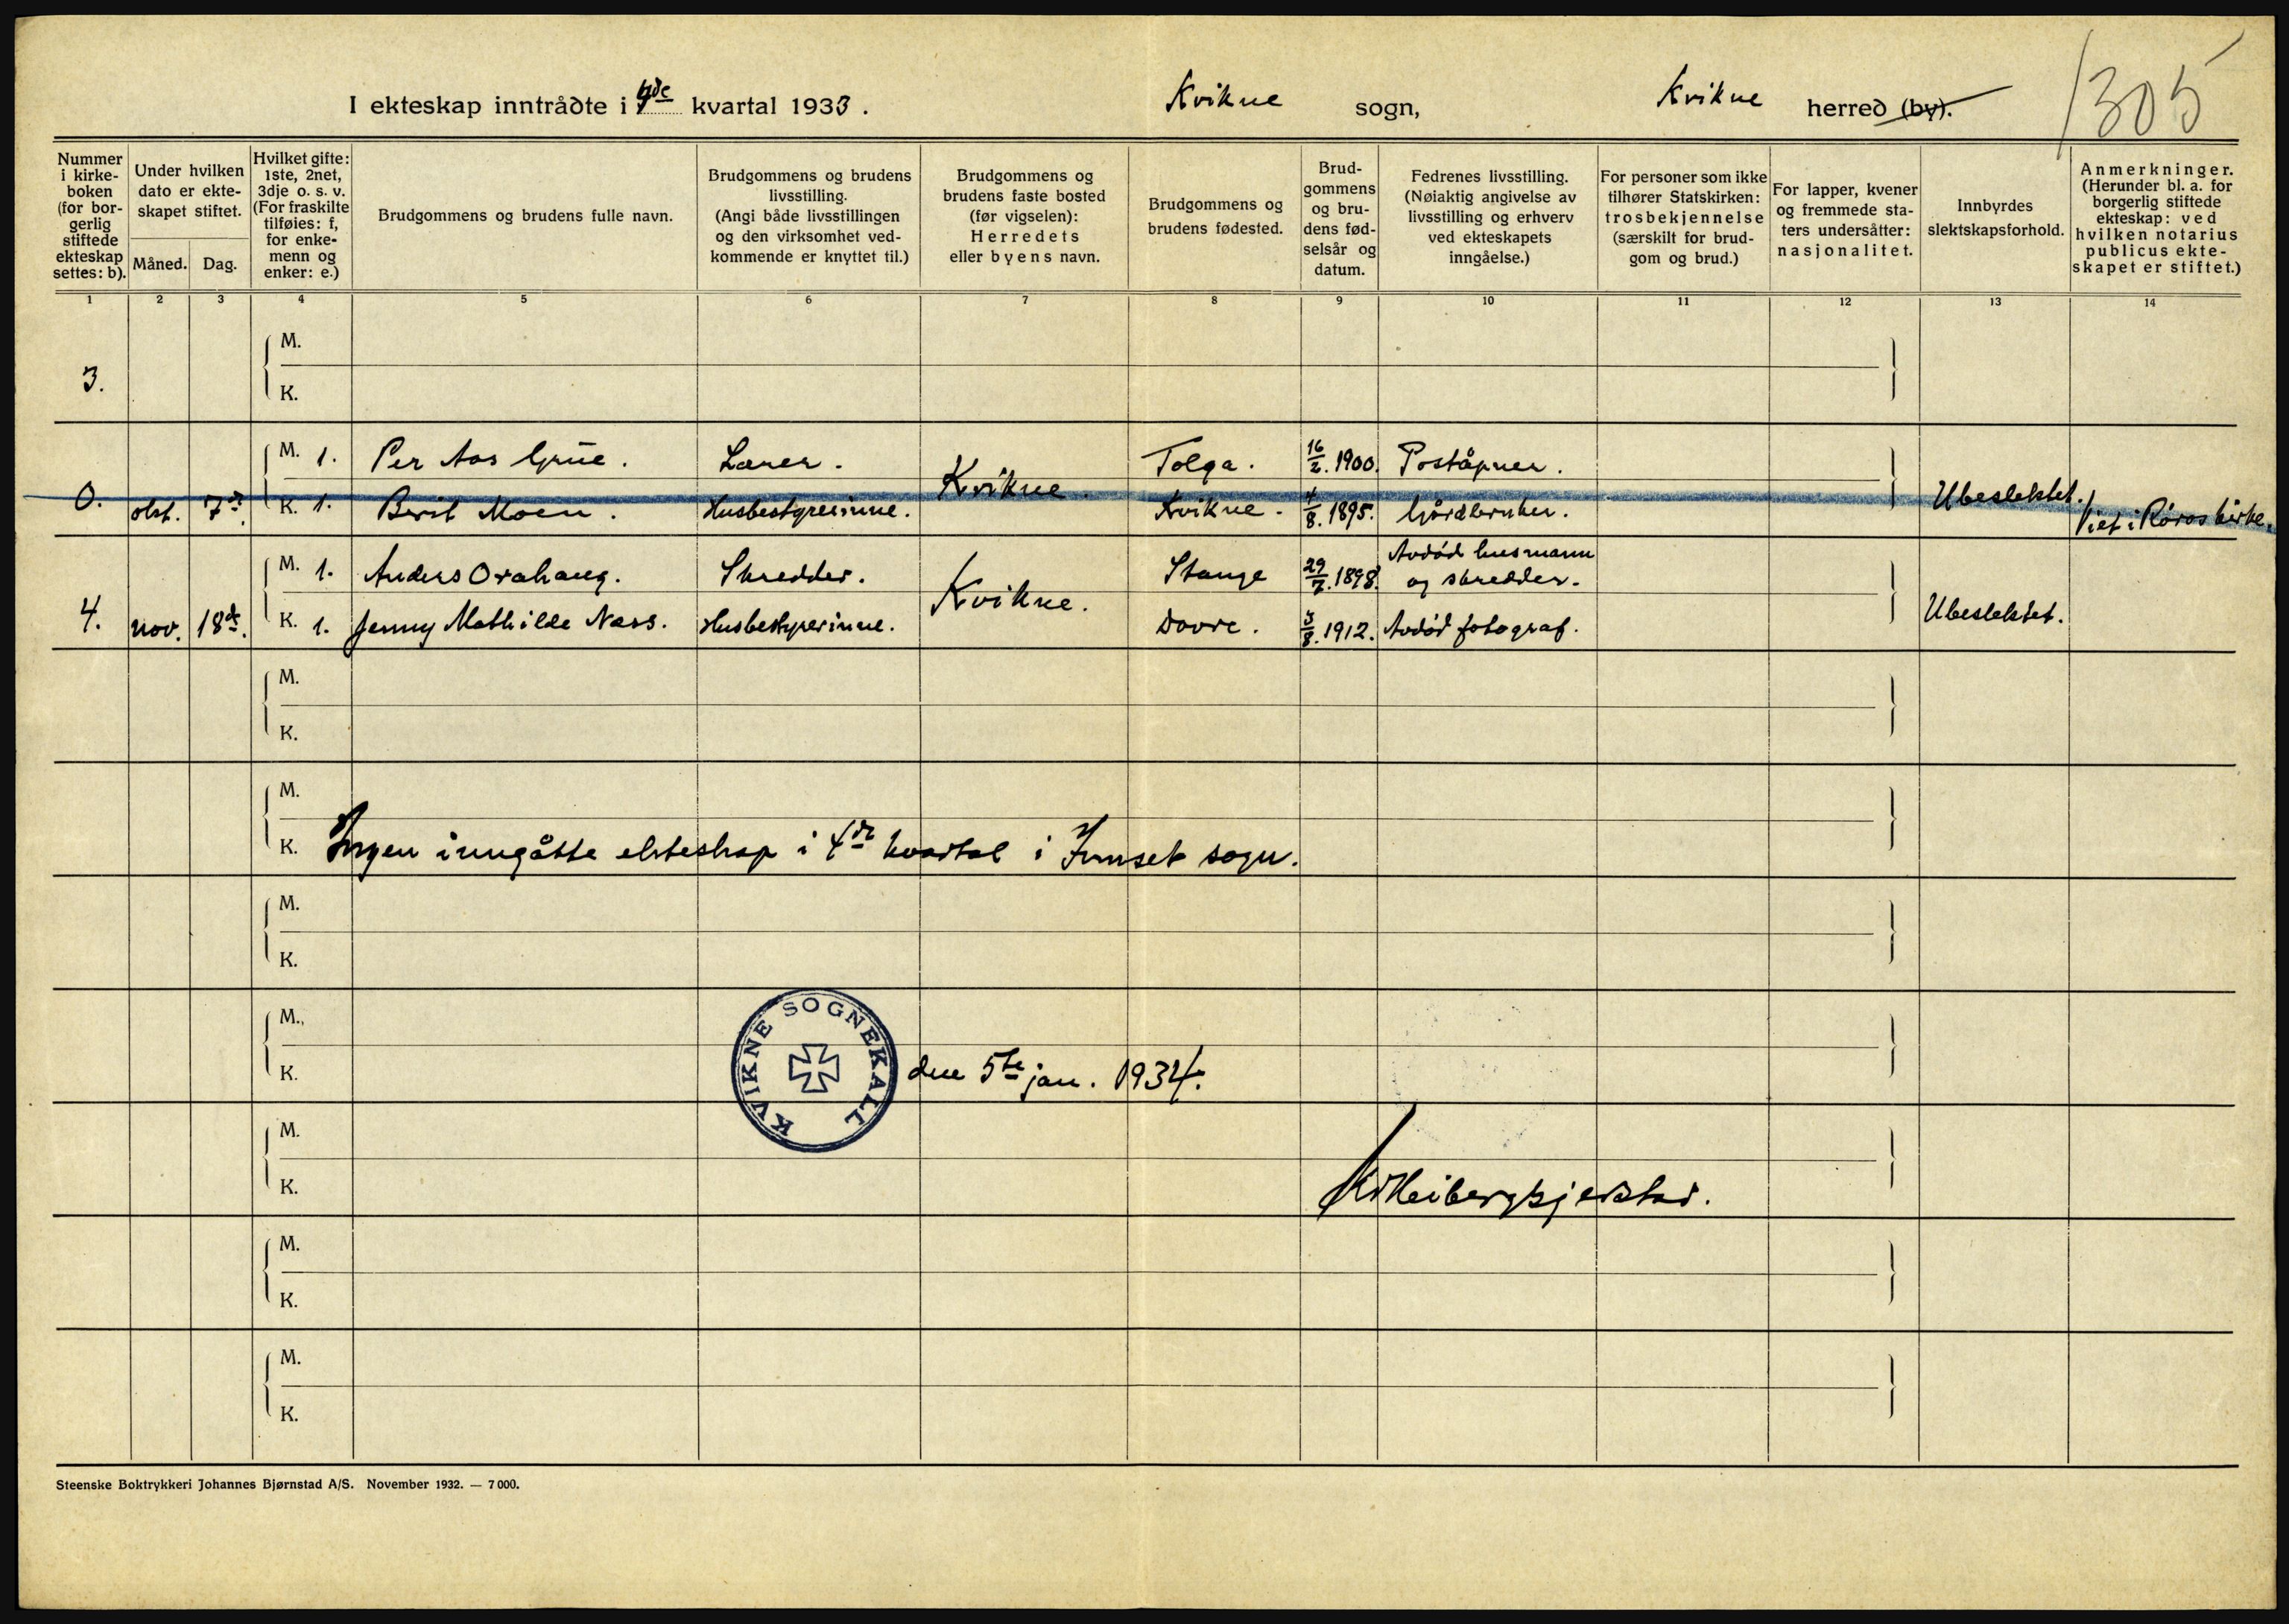 I ekteskap inntrådte i 4de kvartal 1933. Kvikne sogn, Kvikne herred (by). 305
Nummer i kirke-boken (for bor-gerlig stiftede ekteskap settes: b).
Under hvilken dato er ekte-skapet stiftet.
Måned. Dag.
Hvilket gifte: 1ste, 2net, 3dje o. s. v. (For fraskilte tilføies: f, for enke-menn og enker: e.)
Brudgommens og brudens fulle navn.
Brudgommens og brudens livsstilling. (Angi både livsstillingen og den virksomhet ved-kommende er knyttet til.)
Brudgommens og brudens faste bosted (før vigselen): Herredets eller byens navn.
Brudgommens og brudens fødested.
Brud-gommens og bru-dens fød-selsår og datum.
Fedrenes livsstilling. (Nøiaktig angivelse av livsstilling og erhverv ved ekteskapets inngåelse.)
For personer som ikke tilhører Statskirken: trosbekjennelse (særskilt for brud-gom og brud.)
For lapper, kvener og fremmede sta-ters undersåtter: nasjonalitet.
Innbyrdes slektskapsforhold.
Anmerkninger. (Herunder bl. a. for borgerlig stiftede ekteskap: ved hvilken notarius publicus ekte-skapet er stiftet.)
1 2 3 4 5 6 7 8 9 10 11 12 13 14
M.
3.
K.
M. 1. Per Aas Grue. Lærer. Tolga. 16/2. 1900. Poståpner.
0. okt. 7de. K. 1. Berit Moen. Husbestyrerinne. Kvikne. Kvikne. 4/8. 1895. Gårdbruker. Ubeslektet. Viet i Røros kirke.
M. 1. Anders Orahaug. Skredder. Stange 29/7. 1898. Avdød husmann og skredder.
4. nov. 18de. K. 1. Jenny Mathilde Næss. Husbestyrerinne. Kvikne. Dovre. 3/8. 1912. Avdød fotograf. Ubeslektet.
M.
K.
M.
K. Ingen inngåtte ekteskap i 4de kvartal i Innset sogn.
M.
K.
M.
K. KVIKNE SOGNEKALL den 5te jan. 1934.
M.
K.
M.
K.
M.
K.
Steenske Boktrykkeri Johannes Bjørnstad A/S. November 1932. — 7 000.